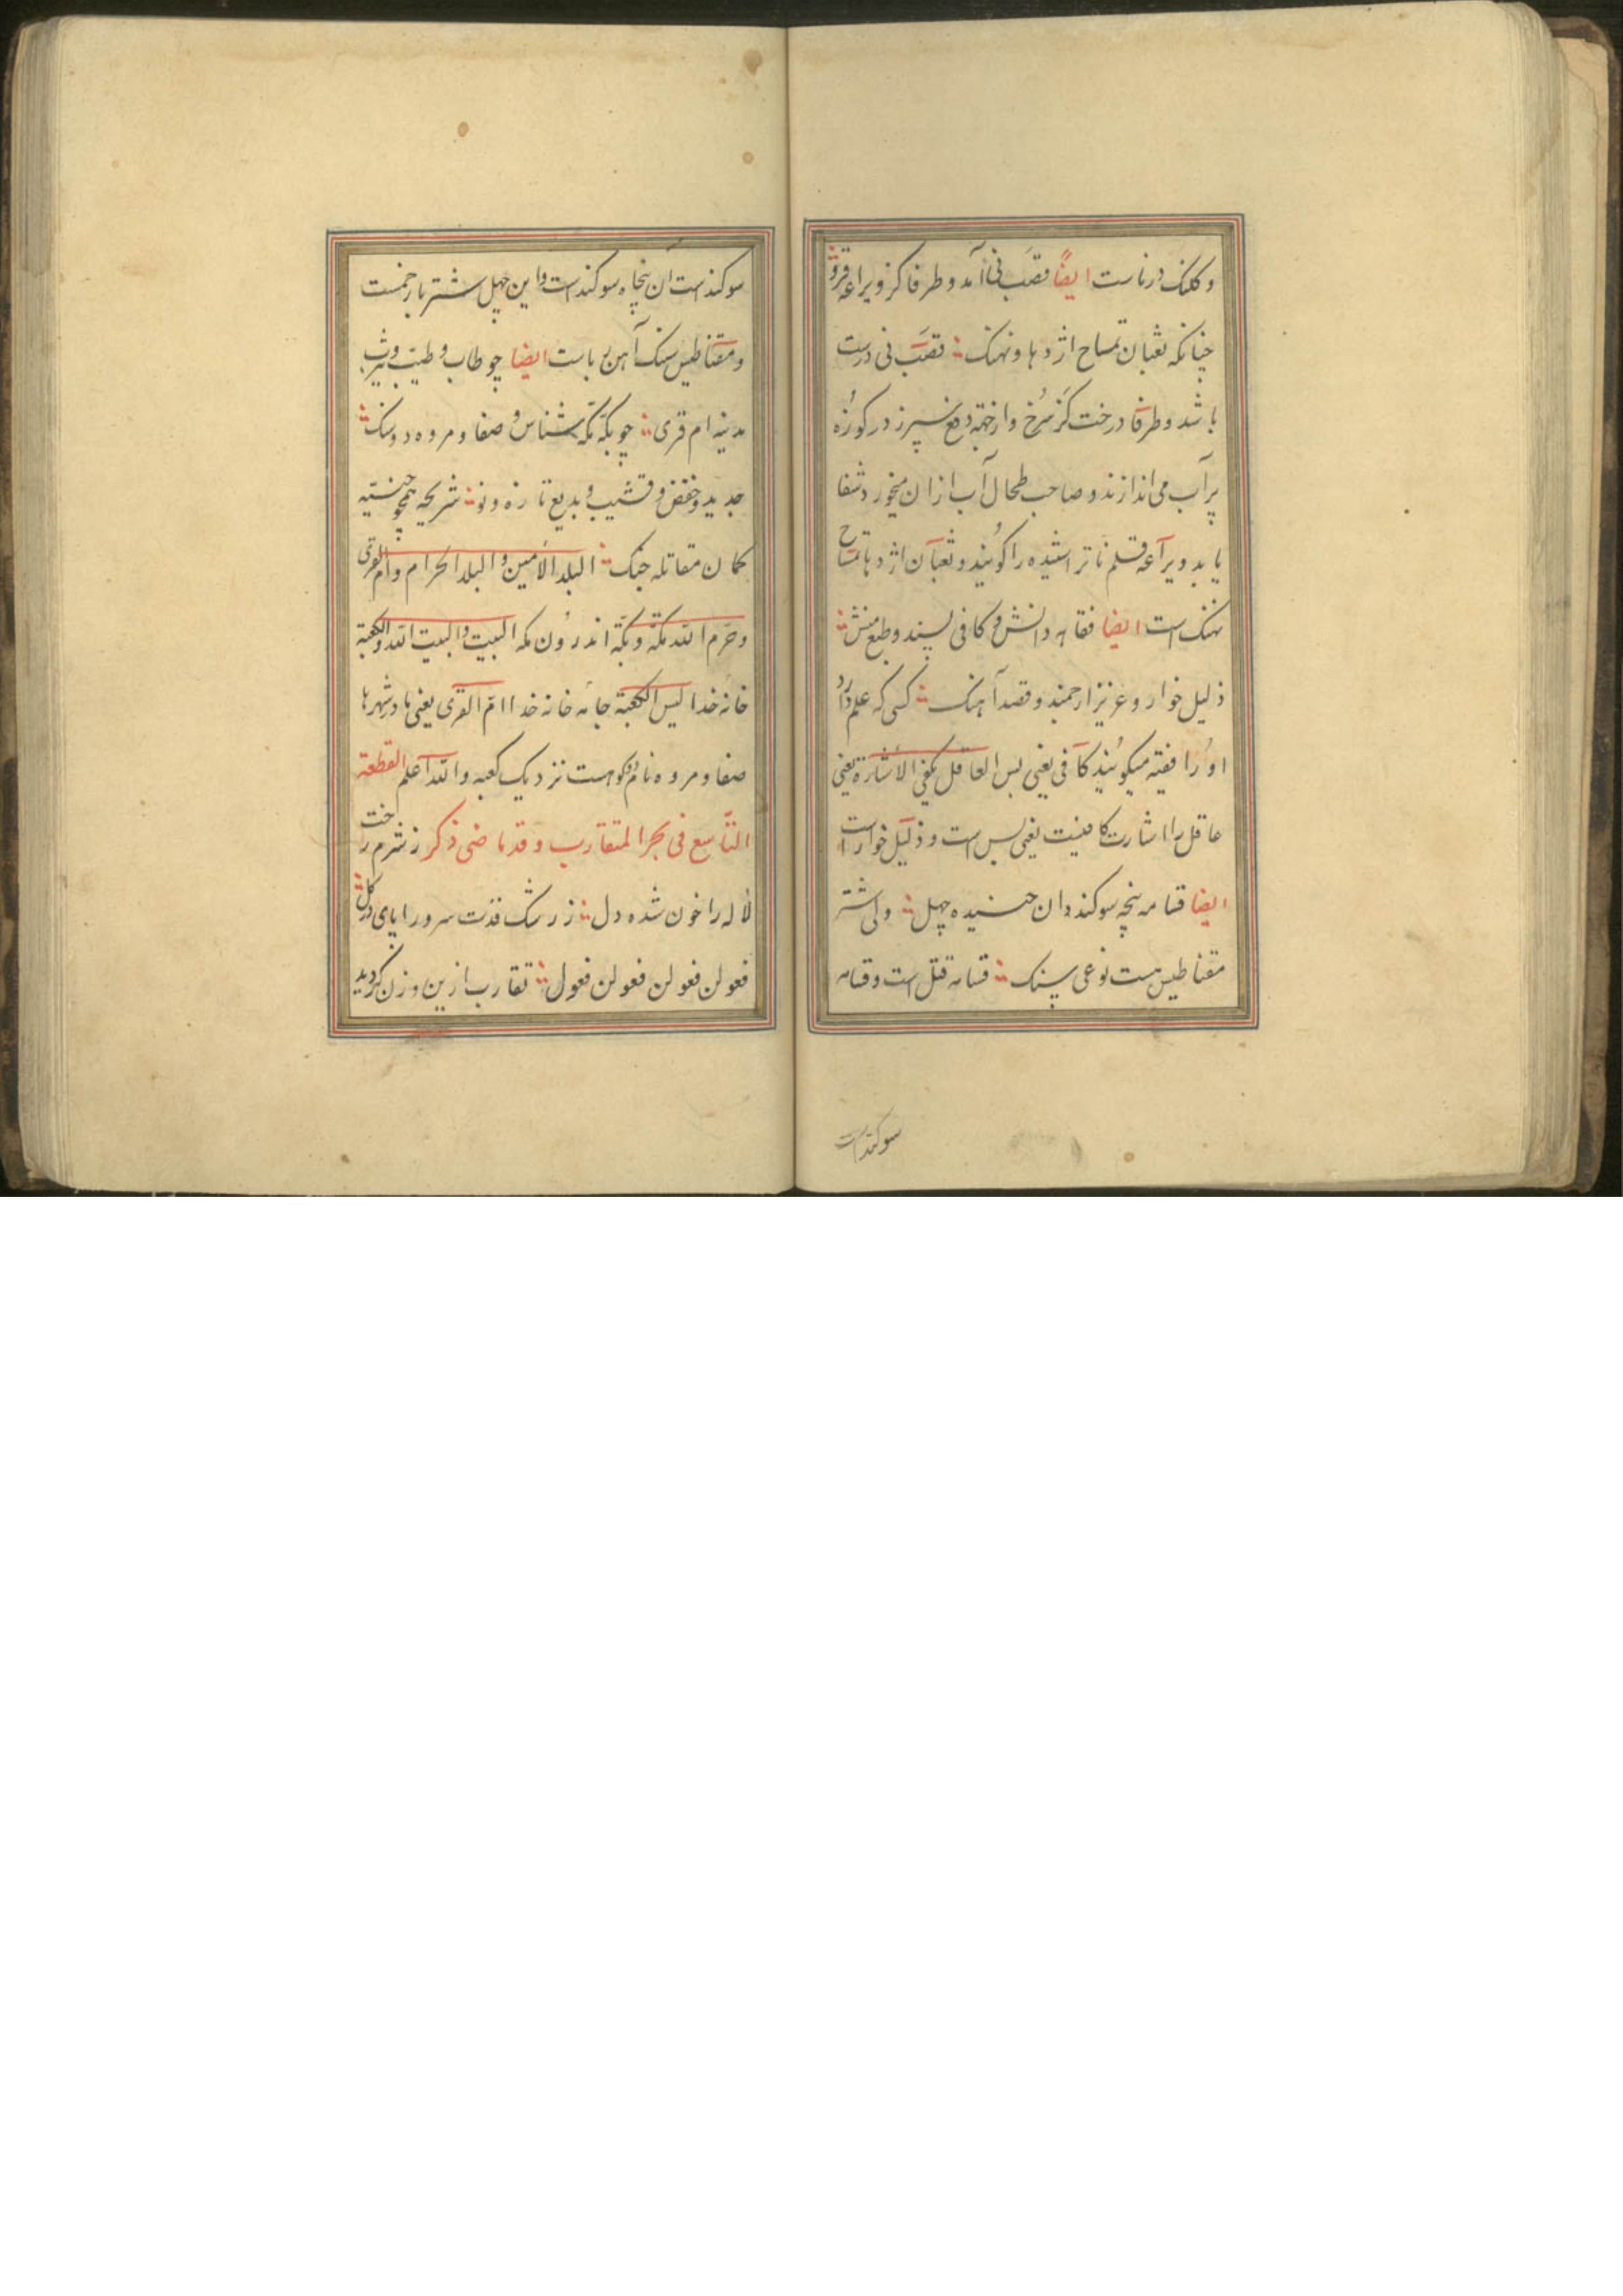 و کلنک درناست ایضًا قصب نی آمد و طرفا کز و یراعه فرو
چنانکه ثعبان تمساح اژدها و نهنک قصب نی درست
باشد و طرفا درخت کز سرخ و از خته دفع سپرز در کوزه
پر آب می اندازند و صاحب طحال آب ازان میخورد شفا
یابد و یراعه قلم ناتراشیده را کویند و ثعبان اژدها تمساح
نهنک است ایضا فقاهه دانش و کافی پسند و طبع منش
ذلیل خوار و عزیز ارجمند و قصد آهنک کسی که علم دارد
او را فقیه میکویند کافی یعنی بس العاقل یکفی الاشارة یعنی
عاقل را اشارت کافیست یعنی بس است و ذلیل خوار است
ایضا قسامه پنجه سوکند دان چهل ولی شتر
مقناطیس هست نوعی سنک قسامه قتل است و قسامه
سوکند است
سوکند است ان پنجاه سوکند است و این چهل شتر بار
و مقناطیس سنک آهن رباست ایضا چو طاب و طیب و یثرب
مدینه ام قری چو بکه مکه شناس و صفا و مروه دو سنک
جدید و غض و قشیب و بدیع تازه و نو شریحه همچو حنیه
کمان مقاتله جنک البلد الأمین و البلد الحرام و ام القری
و حرم الله مکة و بکة اندرون مکه البیت و البیت الله و الکعبة
خانه خدا لیس الکعبة جائه خانه خدا ام القری یعنی مادر شهرها
صفا و مروه نام دو کوهست نزدیک کعبه و الله اعلم القطعة
التاسع فی بحر المتقارب و قد ماضی ذکر ز شرم رخت
لاله را خون شده دل ز رشک قدت سرو را پای در کل
فعولن فعولن فعولن فعول تقارب ازین وزن کردید